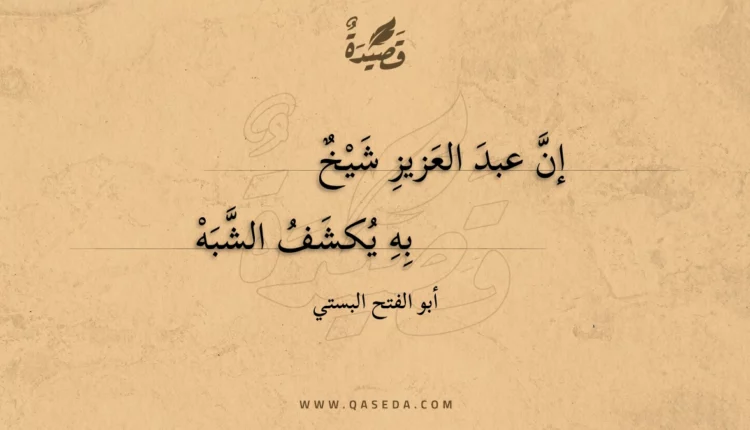 قَصِيدَةٌ
إنَّ عبدَ العَزيزِ شَيْخٌ
بِهِ يُكشَفُ الشَّبَهْ
أبو الفتح البستي
WWW.QASEDA.COM